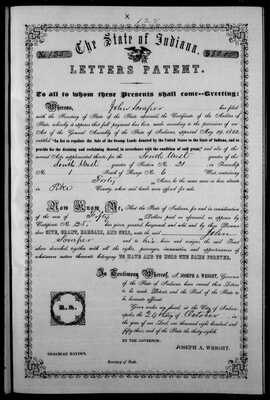 The State of Indiana.
LETTERS PATENT.
To all to whom these Presents shall come—Greeting:
Whereas, John has filed
with the Secretary of State of the State aforesaid the Certificate of the Auditor of
State, whereby it appears that full payment has been made according to the provisions of an
Act of the General Assembly of the State of Indiana, approved May 29, 1852,
entitled "An Act to regulate the Sale of the Swamp Lands donated by the United States to the State of Indiana, and to
provide for the draining and reclaiming thereof in accordance with the condition of said grant," and acts of the
annual Acts supplemental thereto, for the South West quarter of the
South West quarter of Section No. in Township
No. South of Range No. 6 West containing
Forty Acres, to the same more or less, situate
in Pike County, when said lands were offered for sale.
Now Know Ye, That the State of Indiana, for and in consideration
of the sum of Fifty Dollars paid as aforesaid, as appears by
Certificate No. has given granted bargained and sold, and by these Presents
DOES GIVE, GRANT, BARGAIN, AND SELL, unto the said John
and to heirs and assigns, the said Tract
above described together with all the rights, privileges, immunities, and appurtenances of
whatsoever nature thereunto belonging TO HAVE AND TO HOLD THE SAME FOREVER.
In Testimony Whereof, I, JOSEPH A. WRIGHT, Governor
of the State of Indiana, have caused these Letters
to be made Patent, and the Seal of the State to
be hereunto affixed.
Given under my hand, at the City of Indianapolis,
the 24th day of October in
the year of our Lord, one thousand eight hundred and
fifty-three, and of the State the thirty-eighth.
BY THE GOVERNOR:
JOSEPH A. WRIGHT.
L.S.
NEHEMIAH HAYDEN,
Secretary of State.